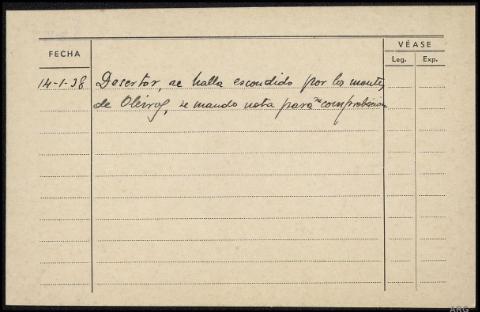 VÉASE
FECHA
Leg. Exp.
14-1-38 Desertor, se halla escondido por los montes
de Oleiros, se mando nota para su comprobacion
ARG